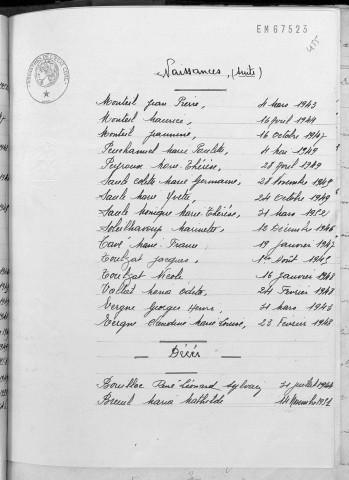 EM67523
Naissances, (suite)
Monteil Jean Pierre, 4 Mars 1943
Monteil Maurice, 16 Avril 1949
Monteil Jeannine, 16 Octobre 1947
Puychamel Marie Paulette, 4 Mai 1949
Peyroux Marie Thérèse, 28 Avril 1949
Saule Odette Marie Germaine, 28 Novembre 1949
Saule Marie Yvette, 24 Octobre 1949
Saule Monique Marie Thérèse, 31 Mars 1952
Marinette, 10 Décembre 1946
Tavé Marie France, 19 Janvier 1947
Toulzat Jacques, 1er Août 1945
Toulzat Nicole, 16 Janvier 1948
Vallat Maria Odette, 24 Février 1948
Vergne Georges Henri, 31 Mars 1943
Vergne Claudine Marie Louise, 23 Février 1948
Décès
René Léonard Sylvain 31 Juillet 1944
Breuil Maria Mathilde 14 Novembre 1951